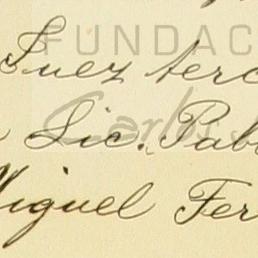 FUNDAC
Juez terc
Lic. Pabl
Carlos
Miguel Fer